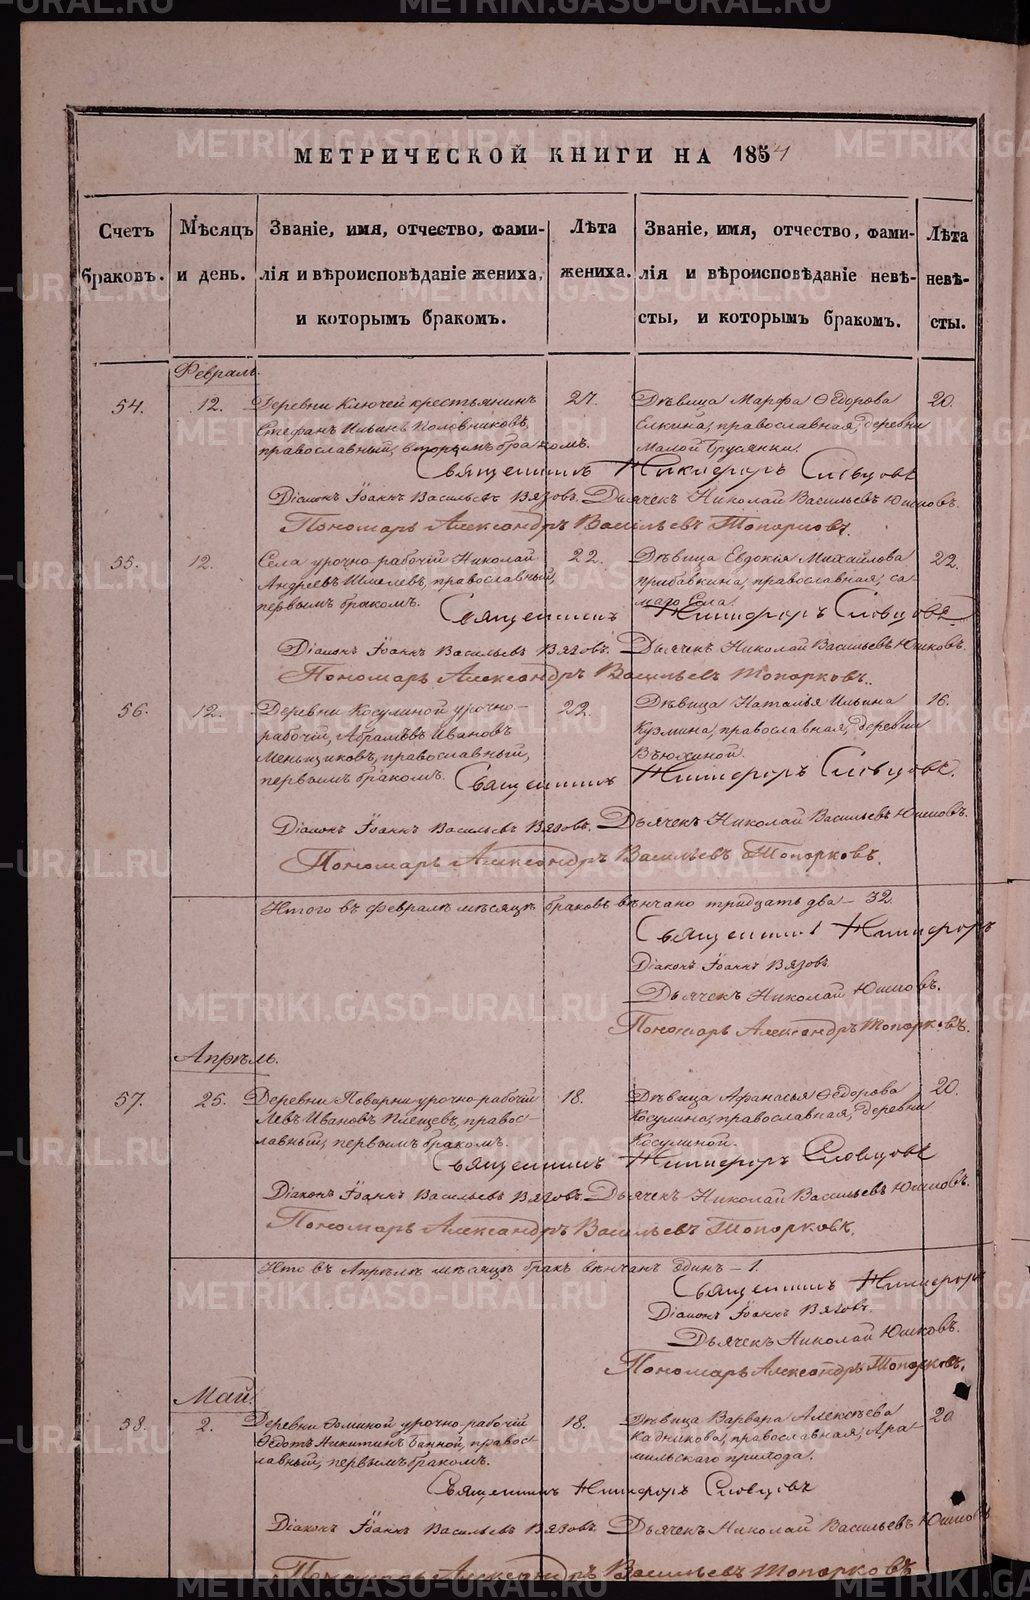 METRIKI.GASO-URAL.RU
МЕТРИЧЕСКОЙ КНИГИ НА 1854
Счетъ браковъ.
Мѣсяцъ и день.
Званіе, имя, отчество, фами-
лія и вѣроисповѣданіе жениха,
и которымъ бракомъ.
Лѣта жениха.
Званіе, имя, отчество, фами-
лія и вѣроисповѣданіе невѣ-
сты, и которымъ бракомъ.
Лѣта невѣ-
сты.
Февраль
54. 12. Деревни Ключей крестьянинъ 27. Дѣвица Марфа Ѳедорова 20.
Стефанъ Ильинъ Половниковъ, Елкина, православная, деревни
православный, вторымъ бракомъ. Малой Брусянки.
Священникъ Никифоръ Словцовъ
Діаконъ Іоаннъ Васильевъ Вязовъ. Дьячекъ Николай Васильевъ Юшковъ.
Пономарь Александръ Васильевъ Топорковъ.
55. 12. Села урочно-рабочій Николай 22. Дѣвица Евдокія Михайлова 22.
Андреевъ Шмелевъ, православный, прибавкина, православная, са-
первымъ бракомъ. маго Села.
Священникъ Никифоръ Словцовъ
Діаконъ Іоаннъ Васильевъ Вязовъ. Дьячекъ Николай Васильевъ Юшковъ.
Пономарь Александръ Васильевъ Топорковъ.
56. 12. Деревни Косулиной урочно- 22. Дѣвица Наталья Ильина 16.
рабочій, Абрамъ Ивановъ Кузмина, православная, деревни
Меньщиковъ, православный, Вьюхиной.
первымъ бракомъ. Священникъ Никифоръ Словцовъ.
Діаконъ Іоаннъ Васильевъ Вязовъ. Дьячекъ Николай Васильевъ Юшковъ.
Пономарь Александръ Васильевъ Топорковъ.
Итого въ Февралѣ мѣсяцѣ браковъ вѣнчано тридцать два – 32.
Священникъ Никифоръ
Діаконъ Іоаннъ Вязовъ
Дьячекъ Николай Юшковъ.
Пономарь Александръ Топорковъ.
Апрѣль.
57. 25. Деревни Поварни урочно-рабочій 18. Дѣвица Афанасья Ѳедорова 20.
Левъ Ивановъ Плещевъ, правос- Косулина, православная, деревни
лавный, первымъ бракомъ. Косулиной.
Священникъ Никифоръ Словцовъ
Діаконъ Іоаннъ Васильевъ Вязовъ. Дьячекъ Николай Васильевъ Юшковъ.
Пономарь Александръ Васильевъ Топорковъ.
Итого въ Апрѣлѣ мѣсяцѣ бракъ вѣнчанъ единъ – 1.
Священникъ Никифоръ
Діаконъ Іоаннъ Вязовъ.
Дьячекъ Николай Юшковъ.
Пономарь Александръ Топорковъ.
Май.
58. 2. Деревни Фоминой урочно-рабочій 18. Дѣвица Варвара Алексѣева 20
Ѳедотъ Никитинъ Банной, правос- Кадникова, православная, Ара-
лавный, первымъ бракомъ. мильскаго прихода.
Священникъ Никифоръ Словцовъ
Діаконъ Іоаннъ Васильевъ Вязовъ. Дьячекъ Николай Васильевъ Юшковъ
Пономарь Александръ Васильевъ Топорковъ